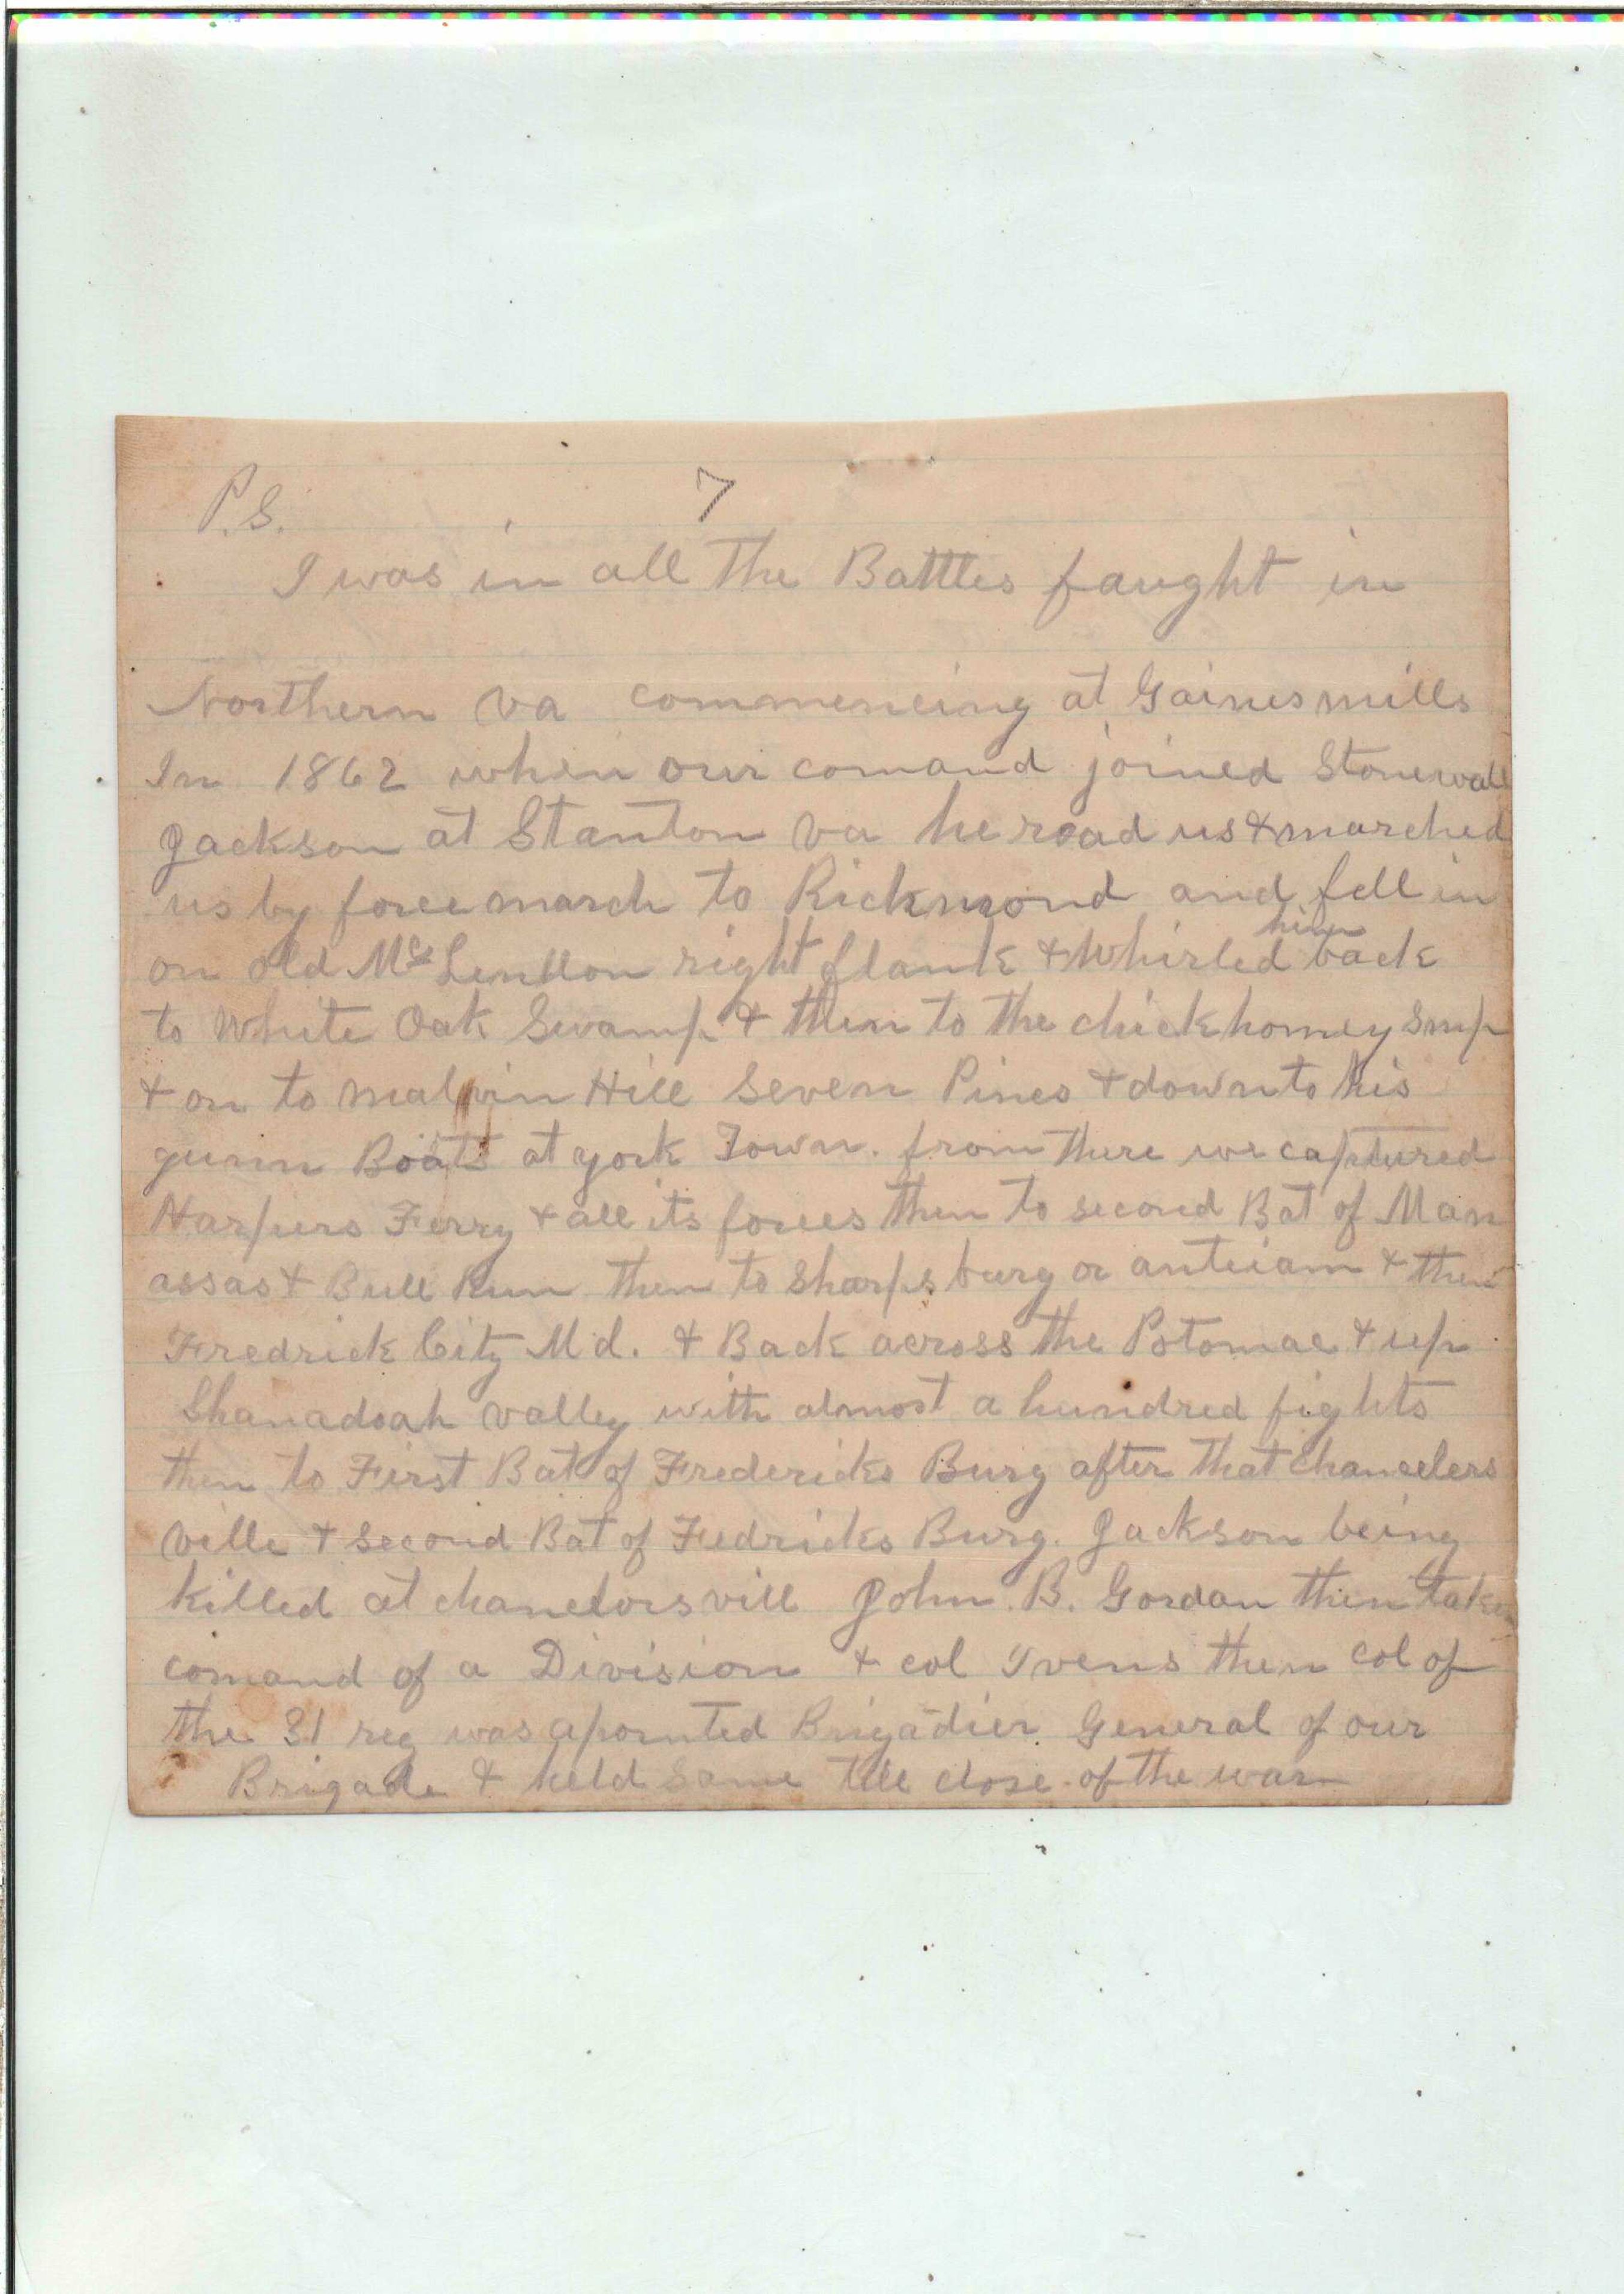 P.S. 7
I was in all The Battles faught in
Northern Va commencing at Gainesmills
In 1862 when our comand joined Stonewall
Jackson at Stanton Va he road us & marched
us by force march to Richmond and fell in
on old McLenllon right flank & Whirled him back
to White Oak Swamp & then to the chickhomey Smp
& on to malvin Hill Seven Pines & down to his
gunn Boats at york Town. from there we captured
Harpers Ferry & all its forces then to second Bat of Man
assas & Bull Run then to Sharpsburg or antieam & then
Fredrick City Md. & Back across the Potomac & up
Shanadoah valley with almost a hundred fights
then to First Bat of Fredericks Burg after that Chancelers
ville & second Bat of Fredricks Burg. Jackson being
killed at chanclorsvill John. B. Gordan then take
comand of a Division & col Evens then col of
the 31 reg was apointed Brigadier General of our
Brigade & held same till close of the war